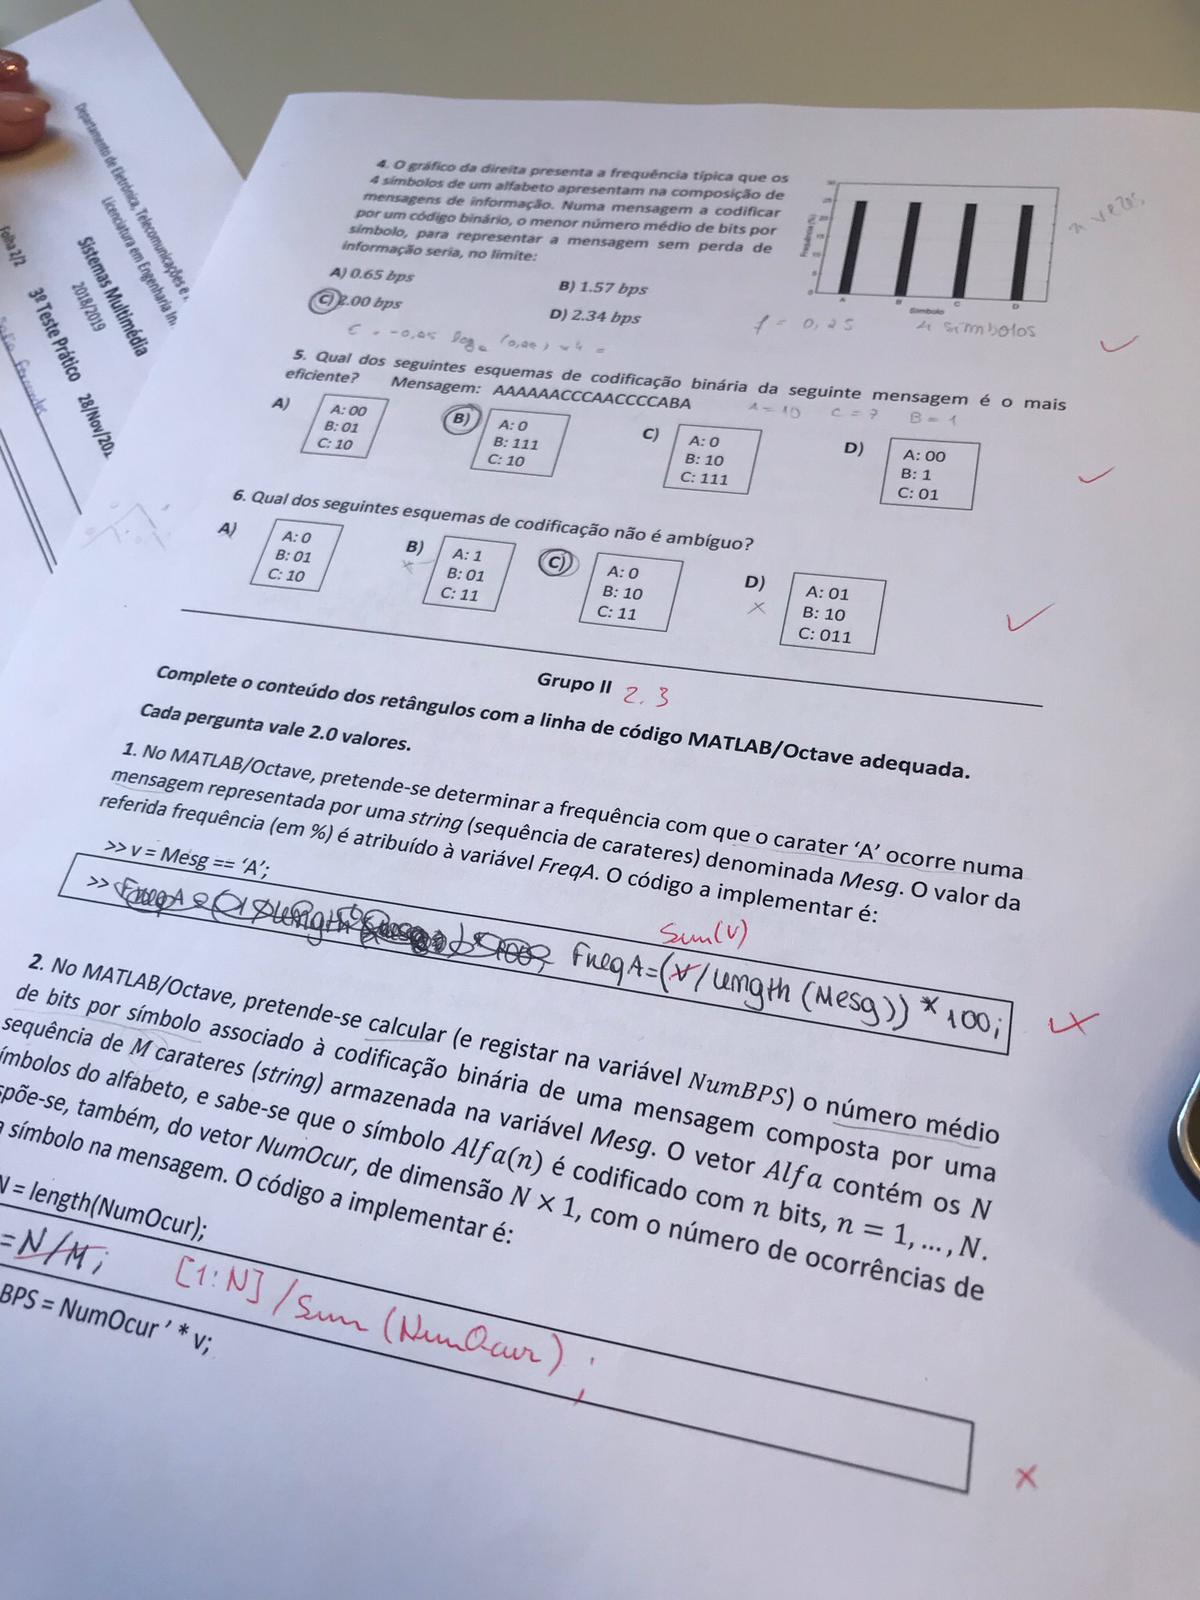 Departamento de Eletrónica, Telecomunicações e
Licenciatura em Engenharia In
Sistemas Multimédia
2018/2019
3º Teste Prático 28/Nov/20
Folha 2/2
4. O gráfico da direita presenta a frequência típica que os
4 símbolos de um alfabeto apresentam na composição de
mensagens de informação. Numa mensagem a codificar
por um código binário, o menor número médio de bits por
símbolo, para representar a mensagem sem perda de
informação seria, no limite:
A) 0.65 bps
B) 1.57 bps
C) 2.00 bps
D) 2.34 bps
Frequência (%)
A B C D
Símbolo
f = 0,25 4 símbolos
5. Qual dos seguintes esquemas de codificação binária da seguinte mensagem é o mais
eficiente? Mensagem: AAAAAACCCAACCCCABA
A = 10 C = 7 B = 1
A)
A: 00
B: 01
C: 10
B)
A: 0
B: 111
C: 10
C)
A: 0
B: 10
C: 111
D)
A: 00
B: 1
C: 01
6. Qual dos seguintes esquemas de codificação não é ambíguo?
A)
A: 0
B: 01
C: 10
B)
A: 1
B: 01
C: 11
C)
A: 0
B: 10
C: 11
D)
A: 01
B: 10
C: 011
Grupo II 2.3
Complete o conteúdo dos retângulos com a linha de código MATLAB/Octave adequada.
Cada pergunta vale 2.0 valores.
1. No MATLAB/Octave, pretende-se determinar a frequência com que o carater ‘A’ ocorre numa
mensagem representada por uma string (sequência de carateres) denominada Mesg. O valor da
referida frequência (em %) é atribuído à variável FreqA. O código a implementar é:
>> v = Mesg == ‘A’;
Sum(v)
>> FreqA=(v/length(Mesg))*100;
2. No MATLAB/Octave, pretende-se calcular (e registar na variável NumBPS) o número médio
de bits por símbolo associado à codificação binária de uma mensagem composta por uma
sequência de M carateres (string) armazenada na variável Mesg. O vetor Alfa contém os N
ímbolos do alfabeto, e sabe-se que o símbolo Alfa(n) é codificado com n bits, n = 1, ..., N.
spõe-se, também, do vetor NumOcur, de dimensão N × 1, com o número de ocorrências de
a símbolo na mensagem. O código a implementar é:
N = length(NumOcur);
= N/M; [1:N]/Sum(NumOcur);
BPS = NumOcur ’ * v;